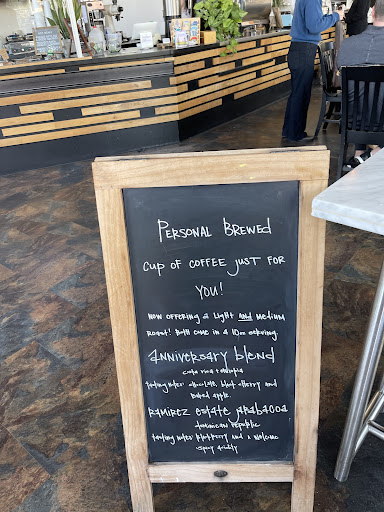 Personal Brewed
Cup of coffee just for
you!
Now offering a light and medium
roast! Both come in a 10oz serving.
Anniversary blend
Costa Rica Ethiopia
Tasting notes: chocolate, black cherry and
baked apple.
Ramirez Estate Jarabacoa
Dominican Republic
Tasting notes: blueberry and a welcome